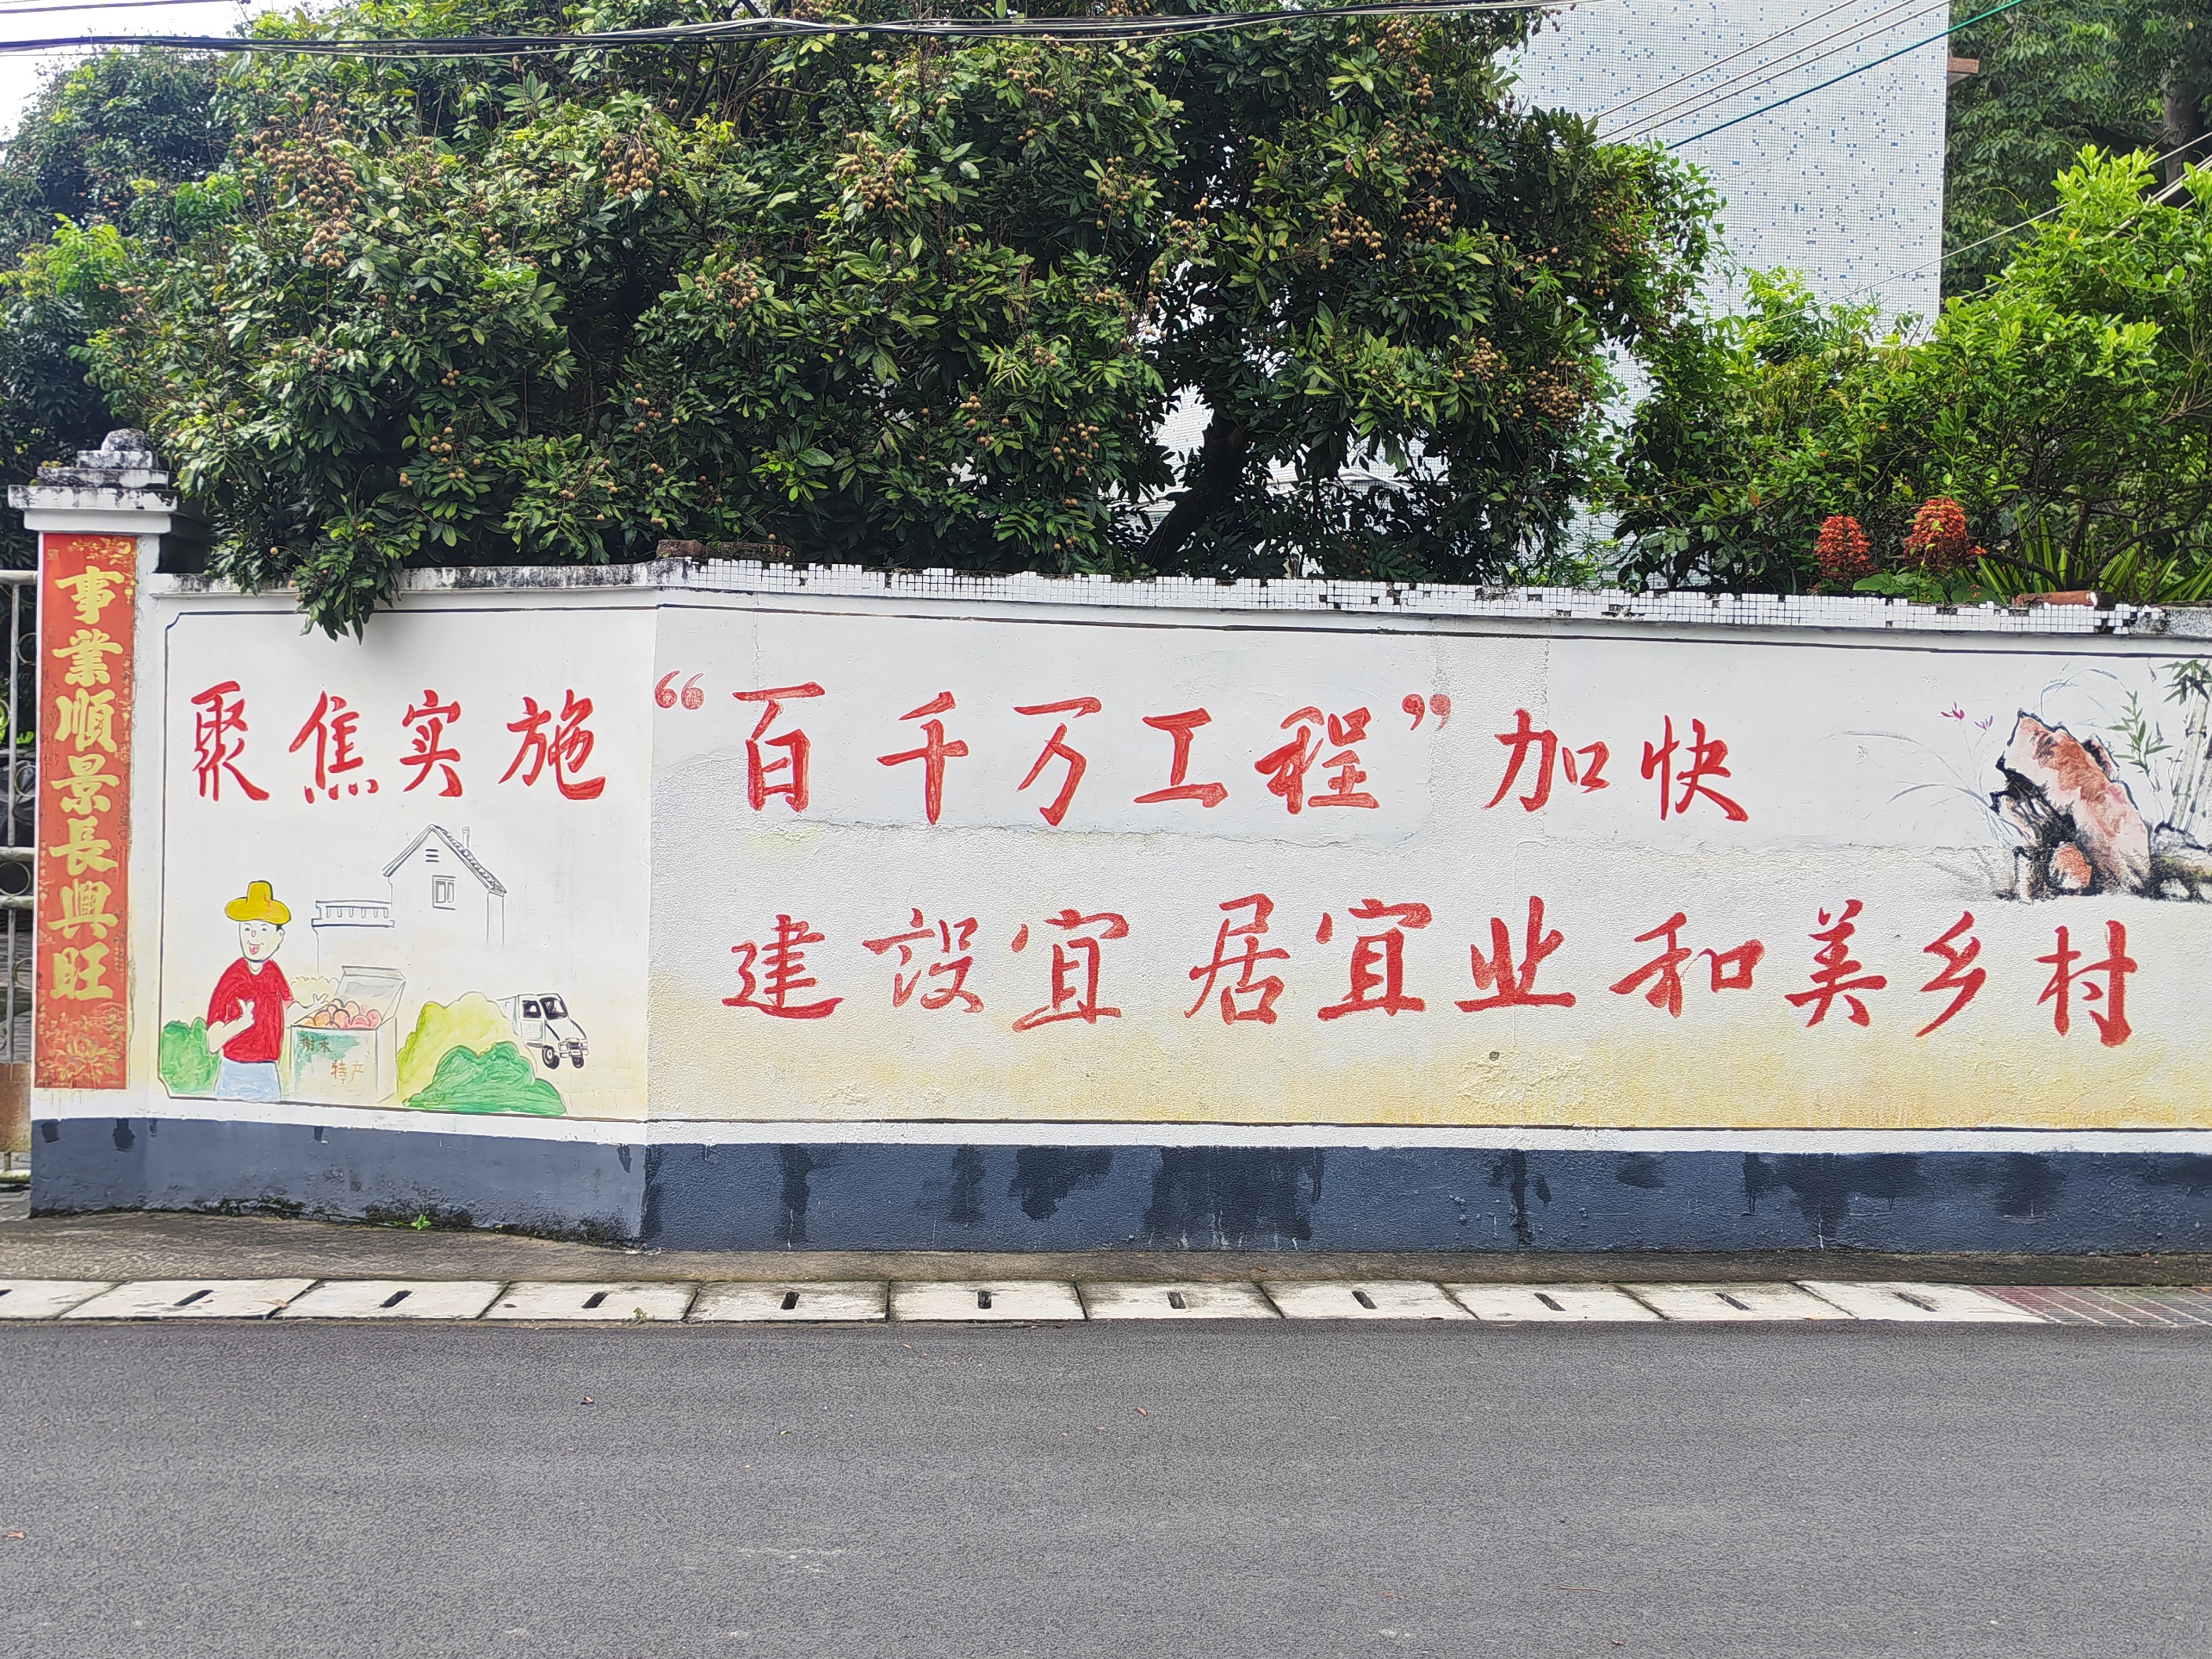 事業順景長興旺
聚焦实施“百千万工程”加快
建设宜居宜业和美乡村
特产